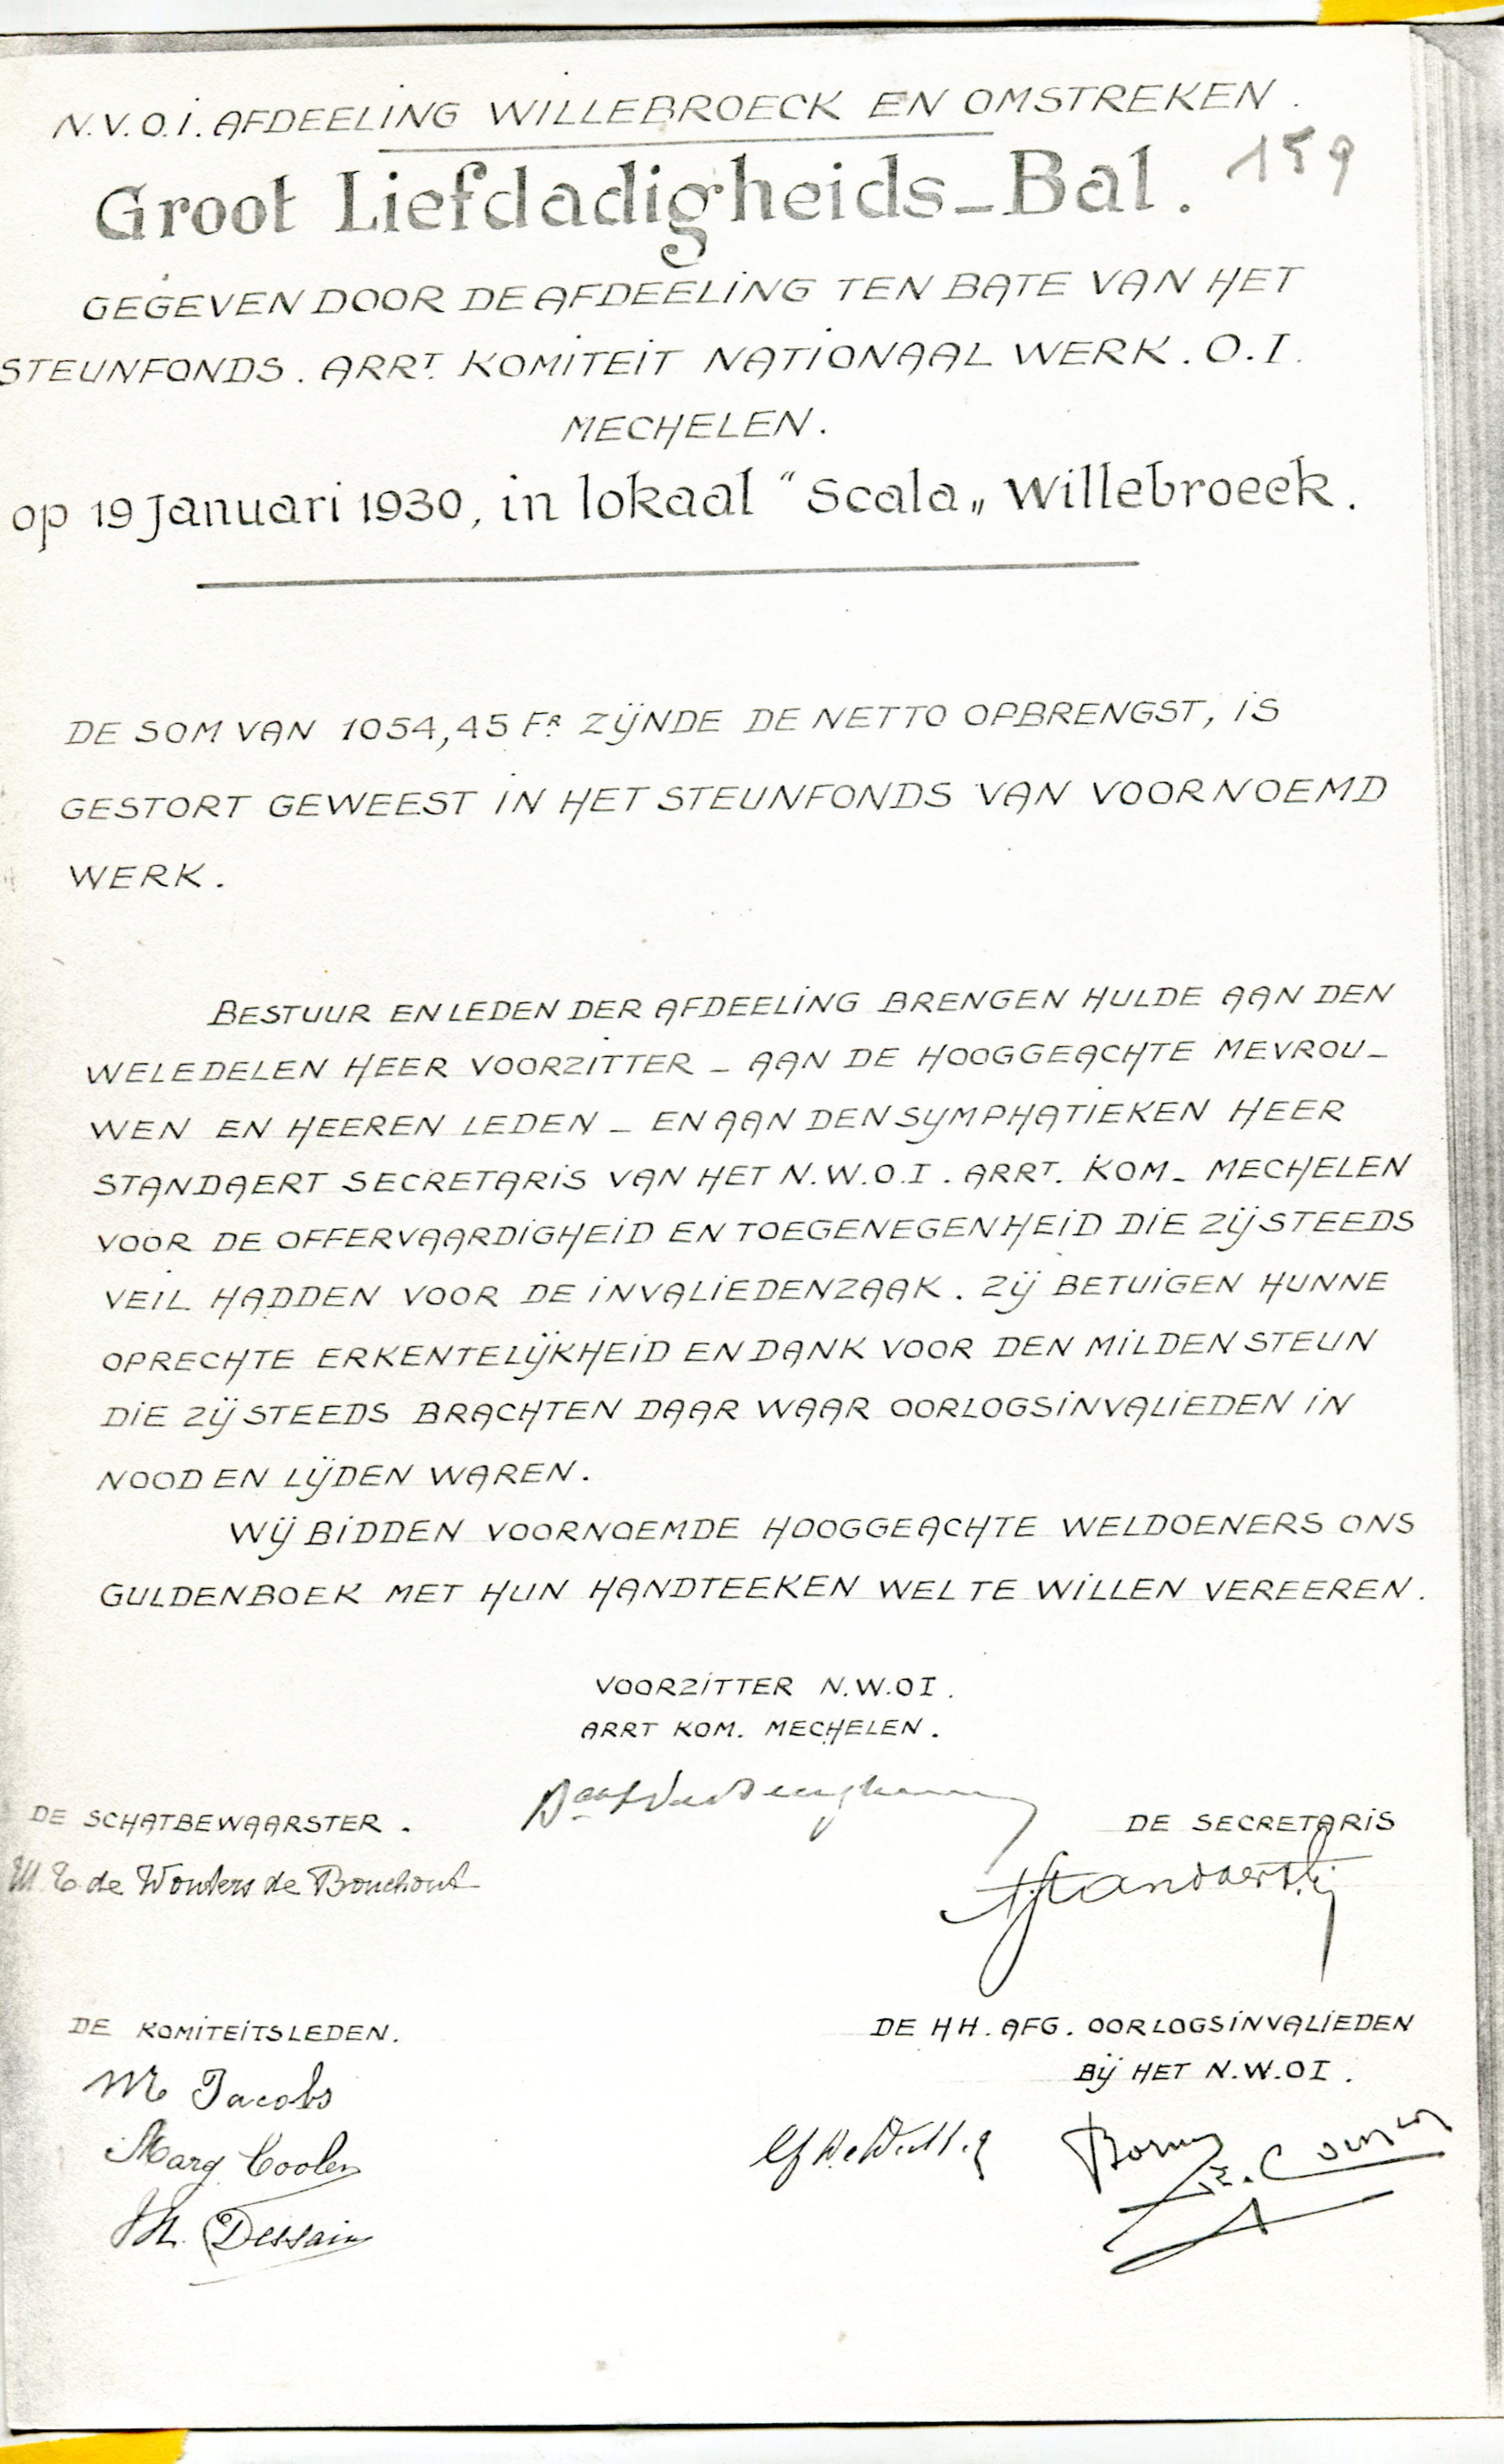 N.V.O.I. AFDEELING WILLEBROECK EN OMSTREKEN.
159
Groot Liefdadigheids-Bal.
GEGEVEN DOOR DE AFDEELING TEN BATE VAN HET
STEUNFONDS. ARRT. KOMITEIT NATIONAAL WERK. O.I.
MECHELEN.
op 19 Januari 1930, in lokaal "Scala„ Willebroeck.
DE SOM VAN 1054,45 FR ZIJNDE DE NETTO OPBRENGST, IS
GESTORT GEWEEST IN HET STEUNFONDS VAN VOORNOEMD
WERK.
BESTUUR EN LEDEN DER AFDEELING BRENGEN HULDE AAN DEN
WELEDELEN HEER VOORZITTER - AAN DE HOOGGEACHTE MEVROU-
WEN EN HEEREN LEDEN - EN AAN DEN SYMPHATIEKEN HEER
STANDAERT SECRETARIS VAN HET N.W.O.I. ARRT. KOM- MECHELEN
VOOR DE OFFERVAARDIGHEID EN TOEGENEGENHEID DIE ZIJ STEEDS
VEIL HADDEN VOOR DE INVALIEDENZAAK. ZIJ BETUIGEN HUNNE
OPRECHTE ERKENTELIJKHEID EN DANK VOOR DEN MILDEN STEUN
DIE ZIJ STEEDS BRACHTEN DAAR WAAR OORLOGSINVALIEDEN IN
NOOD EN LIJDEN WAREN.
WIJ BIDDEN VOORNOEMDE HOOGGEACHTE WELDOENERS ONS
GULDENBOEK MET HUN HANDTEEKEN WEL TE WILLEN VEREEREN.
VOORZITTER N.W.OI.
ARRT KOM. MECHELEN.
DE SCHATBEWAARSTER.
DE SECRETARIS
de Wouters de Bouchout
Standaert
DE KOMITEITSLEDEN.
DE HH. AFG. OORLOGSINVALIEDEN
BIJ HET N.W.OI.
M Jacobs
Marg Coolen
Th. Dessain